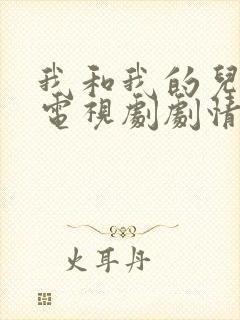 我和我的兒
電視劇劇情
火耳丹